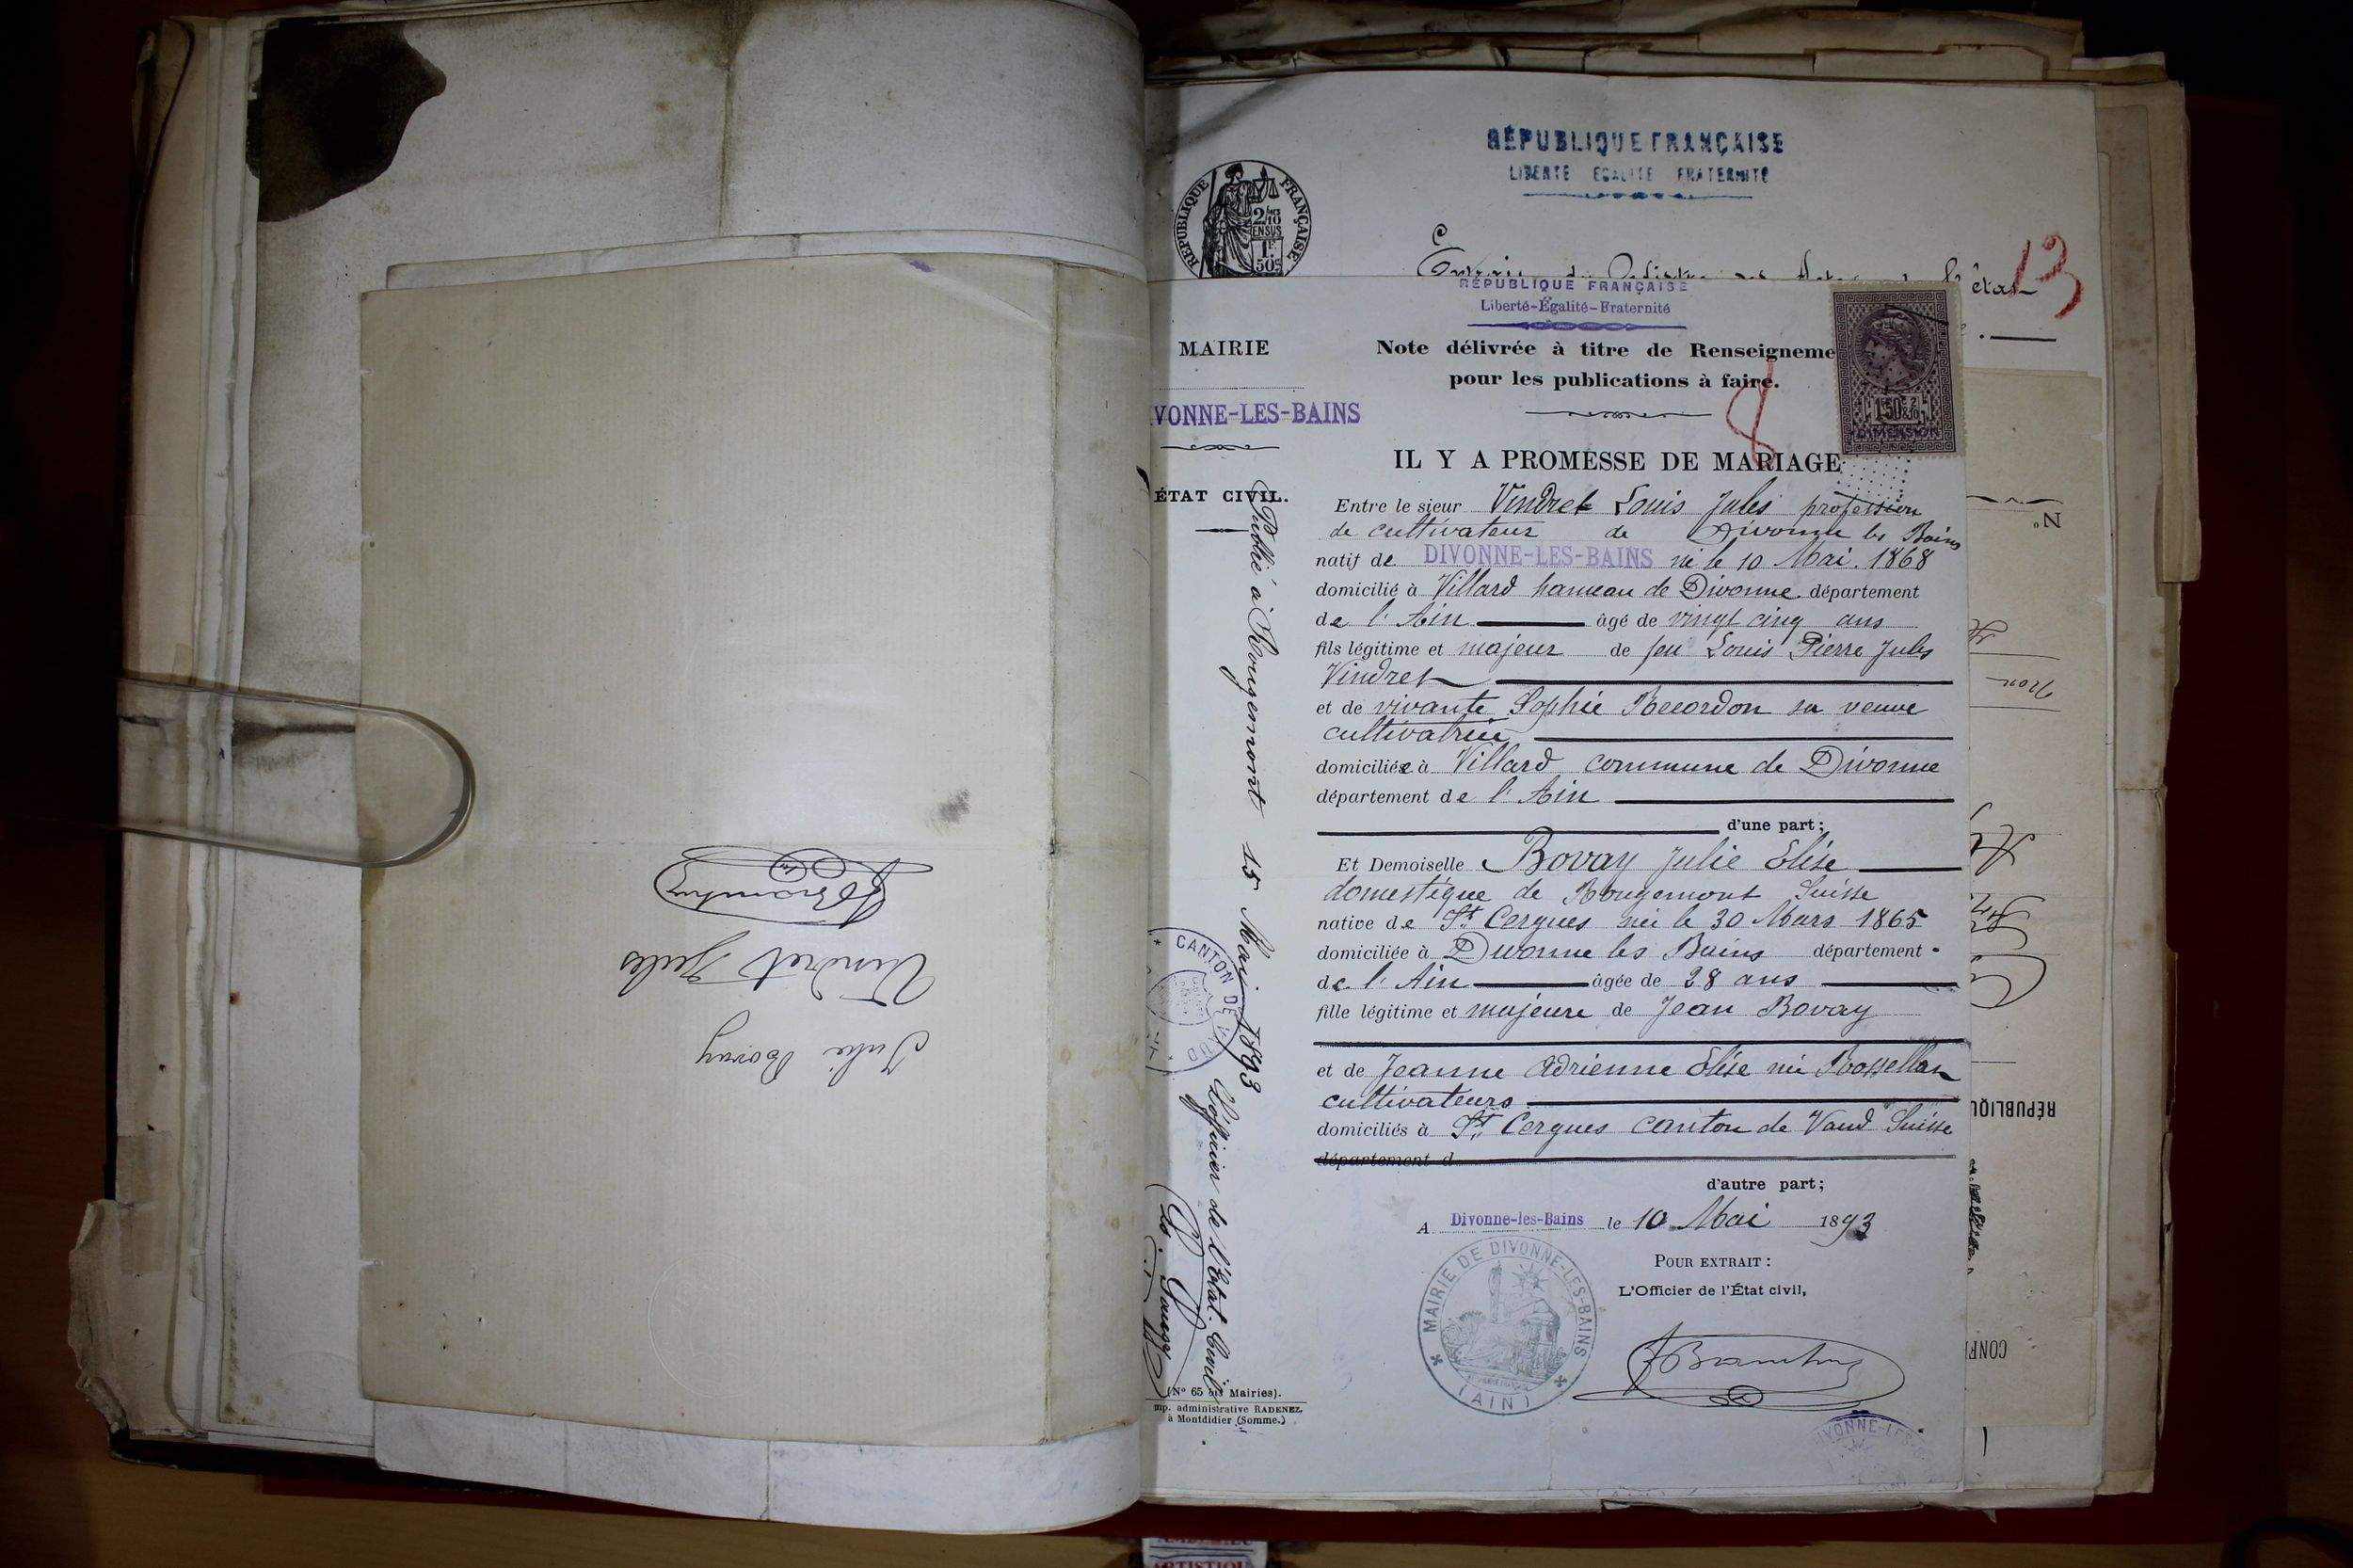 Julie Bovay
Vindret Jules
RÉPUBLIQUE FRANÇAISE
LIBERTÉ ÉGALITÉ FRATERNITÉ
RÉPUBLIQUE FRANÇAISE
2/10
EN SUS
1F.
50c
13
RÉPUBLIQUE FRANÇAISE
Liberté-Égalité-Fraternité
MAIRIE
VONNE-LES-BAINS
ÉTAT CIVIL.
Note délivrée à titre de Renseigneme
pour les publications à faire.
8
DIMENSION
IL Y A PROMESSE DE MARIAGE
Entre le sieur Vindret Louis Jules profession
de cultivateur de Divonne les Bains
natif de DIVONNE-LES-BAINS né le 10 Mai. 1868
domicilié à Villard hameau de Divonne département
de l'Ain âgé de vingt cinq ans
fils légitime et majeur de feu Louis Pierre Jules
Vindret
et de vivante Sophie Recordon sa veuve
cultivatrice
domiciliée à Villard commune de Divonne
département de l'Ain
d'une part;
Et Demoiselle Bovay Julie Elise
domestique de Rougemont Suisse
native de St. Cergues née le 30 Mars 1865
domiciliée à Divonne les Bains département
de l'Ain âgée de 28 ans
fille légitime et majeure de Jean Bovay
et de Jeanne Adrienne Elise née
cultivateurs
domiciliés à St. Cergues canton de Vaud Suisse
département d
d'autre part;
A Divonne-les-Bains le 10 Mai 1893
POUR EXTRAIT:
L'Officier de l'État civil,
MAIRIE DE DIVONNE-LES-BAINS
(AIN)
Publié à Rougemont 15 Mai 1893
L'officier de l'état. Civil
CANTON DE VAUD
(N° 65 bis Mairies).
mp. administrative RADENEZ
à Montdidier (Somme.)
IVONNE-LES
N°
RÉPUBLIQU
CONF